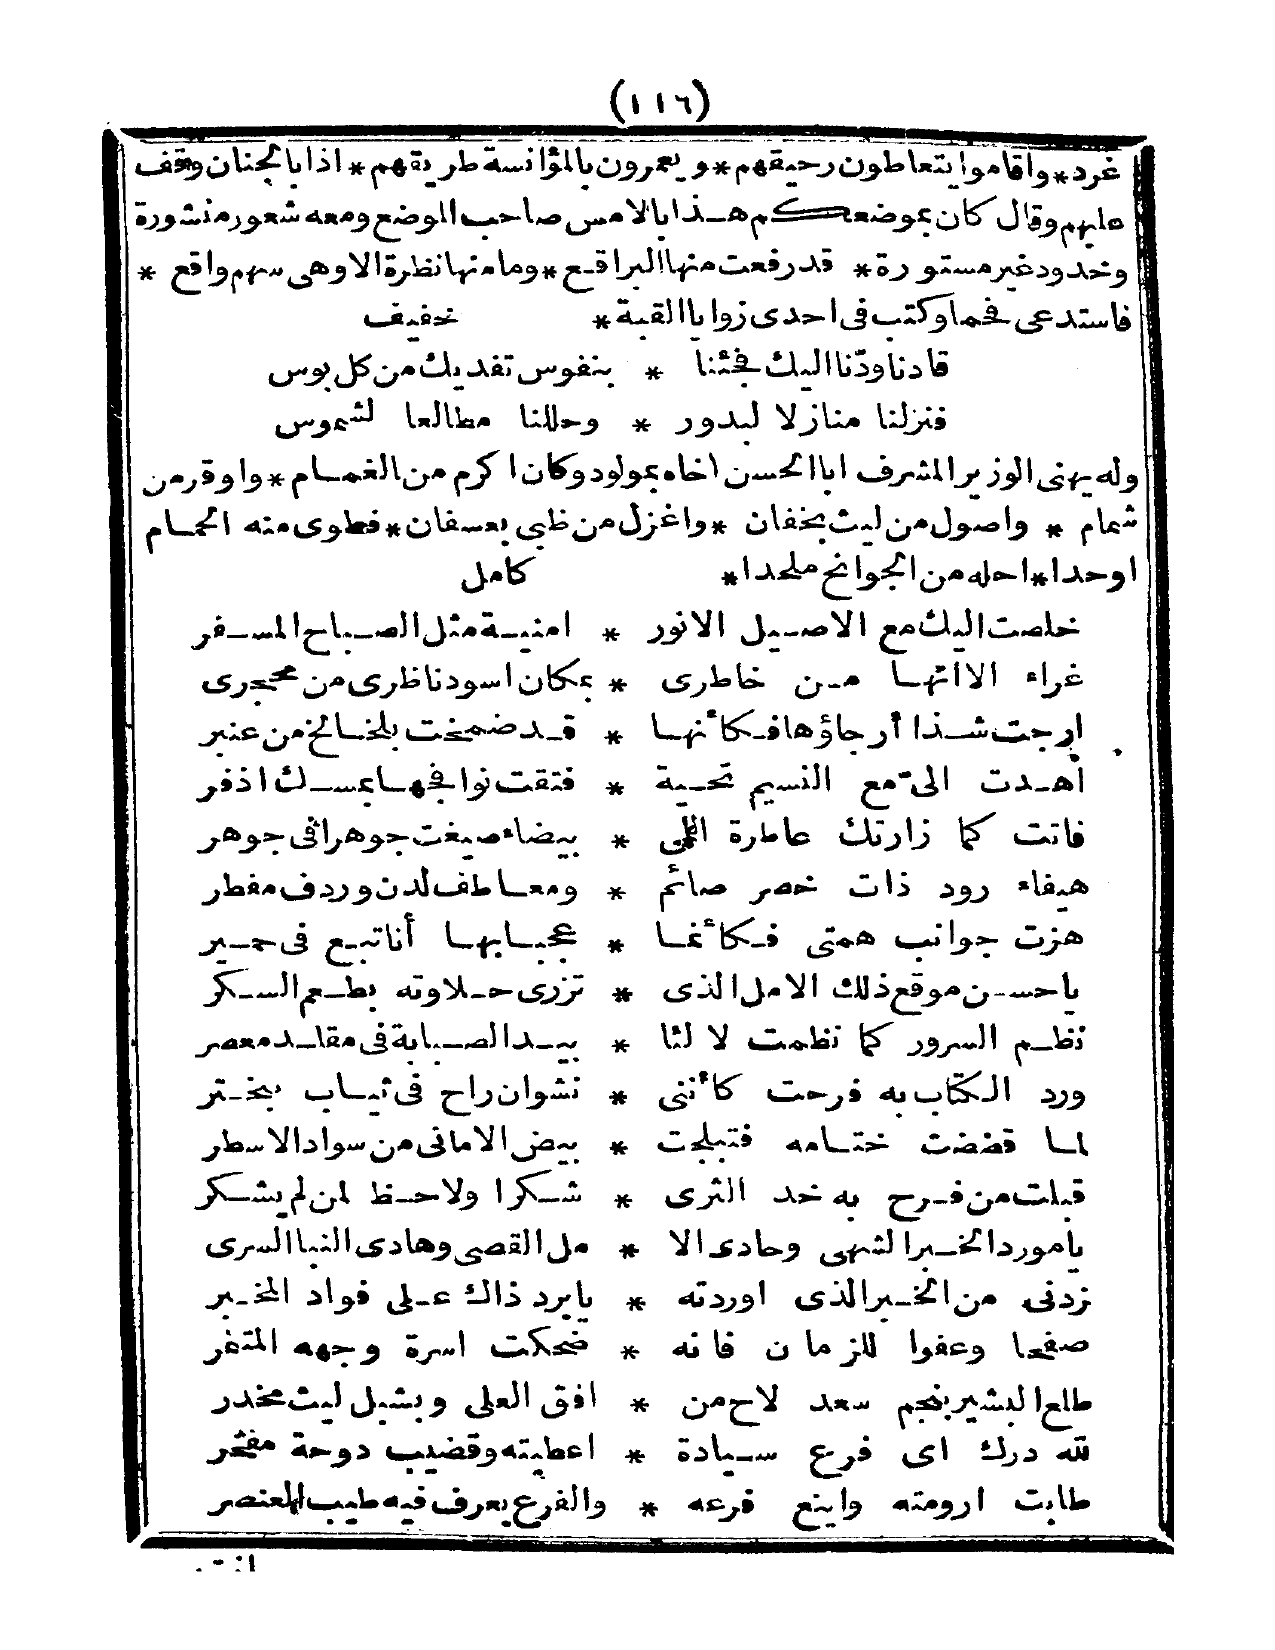 (١١٦)
غرد * وأقاموا يتعاطون رحيقهم * ويعمرون بالمؤانسة طريقهم * اذا بالجنان وقف
عليهم وقال كان بموضعكم هذا بالامس صاحب الموضع ومعه شعور منشورة
وخدود غير مستورة * قد رفعت منها البراقع * وما منها نظرة الا وهى سهم واقع *
فاستدعى فحما وكتب فى احدى زوايا القبة * خفيف
قادنا ودّنا اليك فجئنا * بنفوس تفديك من كل بوس
فنزلنا منازلا لبدور * وحللنا مطالعا لشموس
وله يهنى الوزير المشرف ابا الحسن أخاه بمولود وكان أكرم من الغمام * واوقر من
شمام * واصول من ليث بخفان * واغزل من ظبى بعسفان * فطوى منه الحمام
اوحدا * احله من الجوانح ملحدا * كامل
خلصت اليك مع الاصيل الانور * امنية مثل الصباح المسفر
غراء الا انها من خاطرى * بمكان اسود ناظرى من محجرى
ارجت شذا أرجاؤها فكأنها * قد ضمخت بلخالخ من عنبر
أهدت الىّ مع النسيم تحية * فتقت نوافجها بمسك اذفر
فاتت كما زارتك عاطرة اللمى * بيضاء صيغت جوهرا فى جوهر
هيفاء رود ذات خصر صائم * ومعاطف لدن وردف مفطر
هزت جوانب همتى فكأنما * عجبا بها أنا تبع فى حمير
يا حسن موقع ذلك الامل الذى * تزرى حلاوته بطعم السكر
نظم السرور كما نظمت لالئا * بيد الصبابة فى مقلد معصر
ورد الكتاب به فرحت كأننى * نشوان راح فى ثياب تبختر
لما فضضت ختامه فتبلجت * بيض الامانى من سواد الاسطر
قبلت من فرح به خد الثرى * شكرا ولا حظ لمن لم يشكر
يا مورد الخبر الشهى وحادى الا * مل القصى وهادى النبا السرى
زدنى من الخبر الذى اوردته * يا برد ذاك على فواد المخبر
صفحا وعفوا للزمان فانه * ضحكت اسرة وجهه المتنفر
طلع البشير بنجم سعد لاح من * افق العلى وبشبل ليث مخدر
لله درك اى فرع سيادة * اعطيته وقضيب دوحة مفخر
طابت ارومته واينع فرعه * والفرع يعرف فيه طيب العنصر